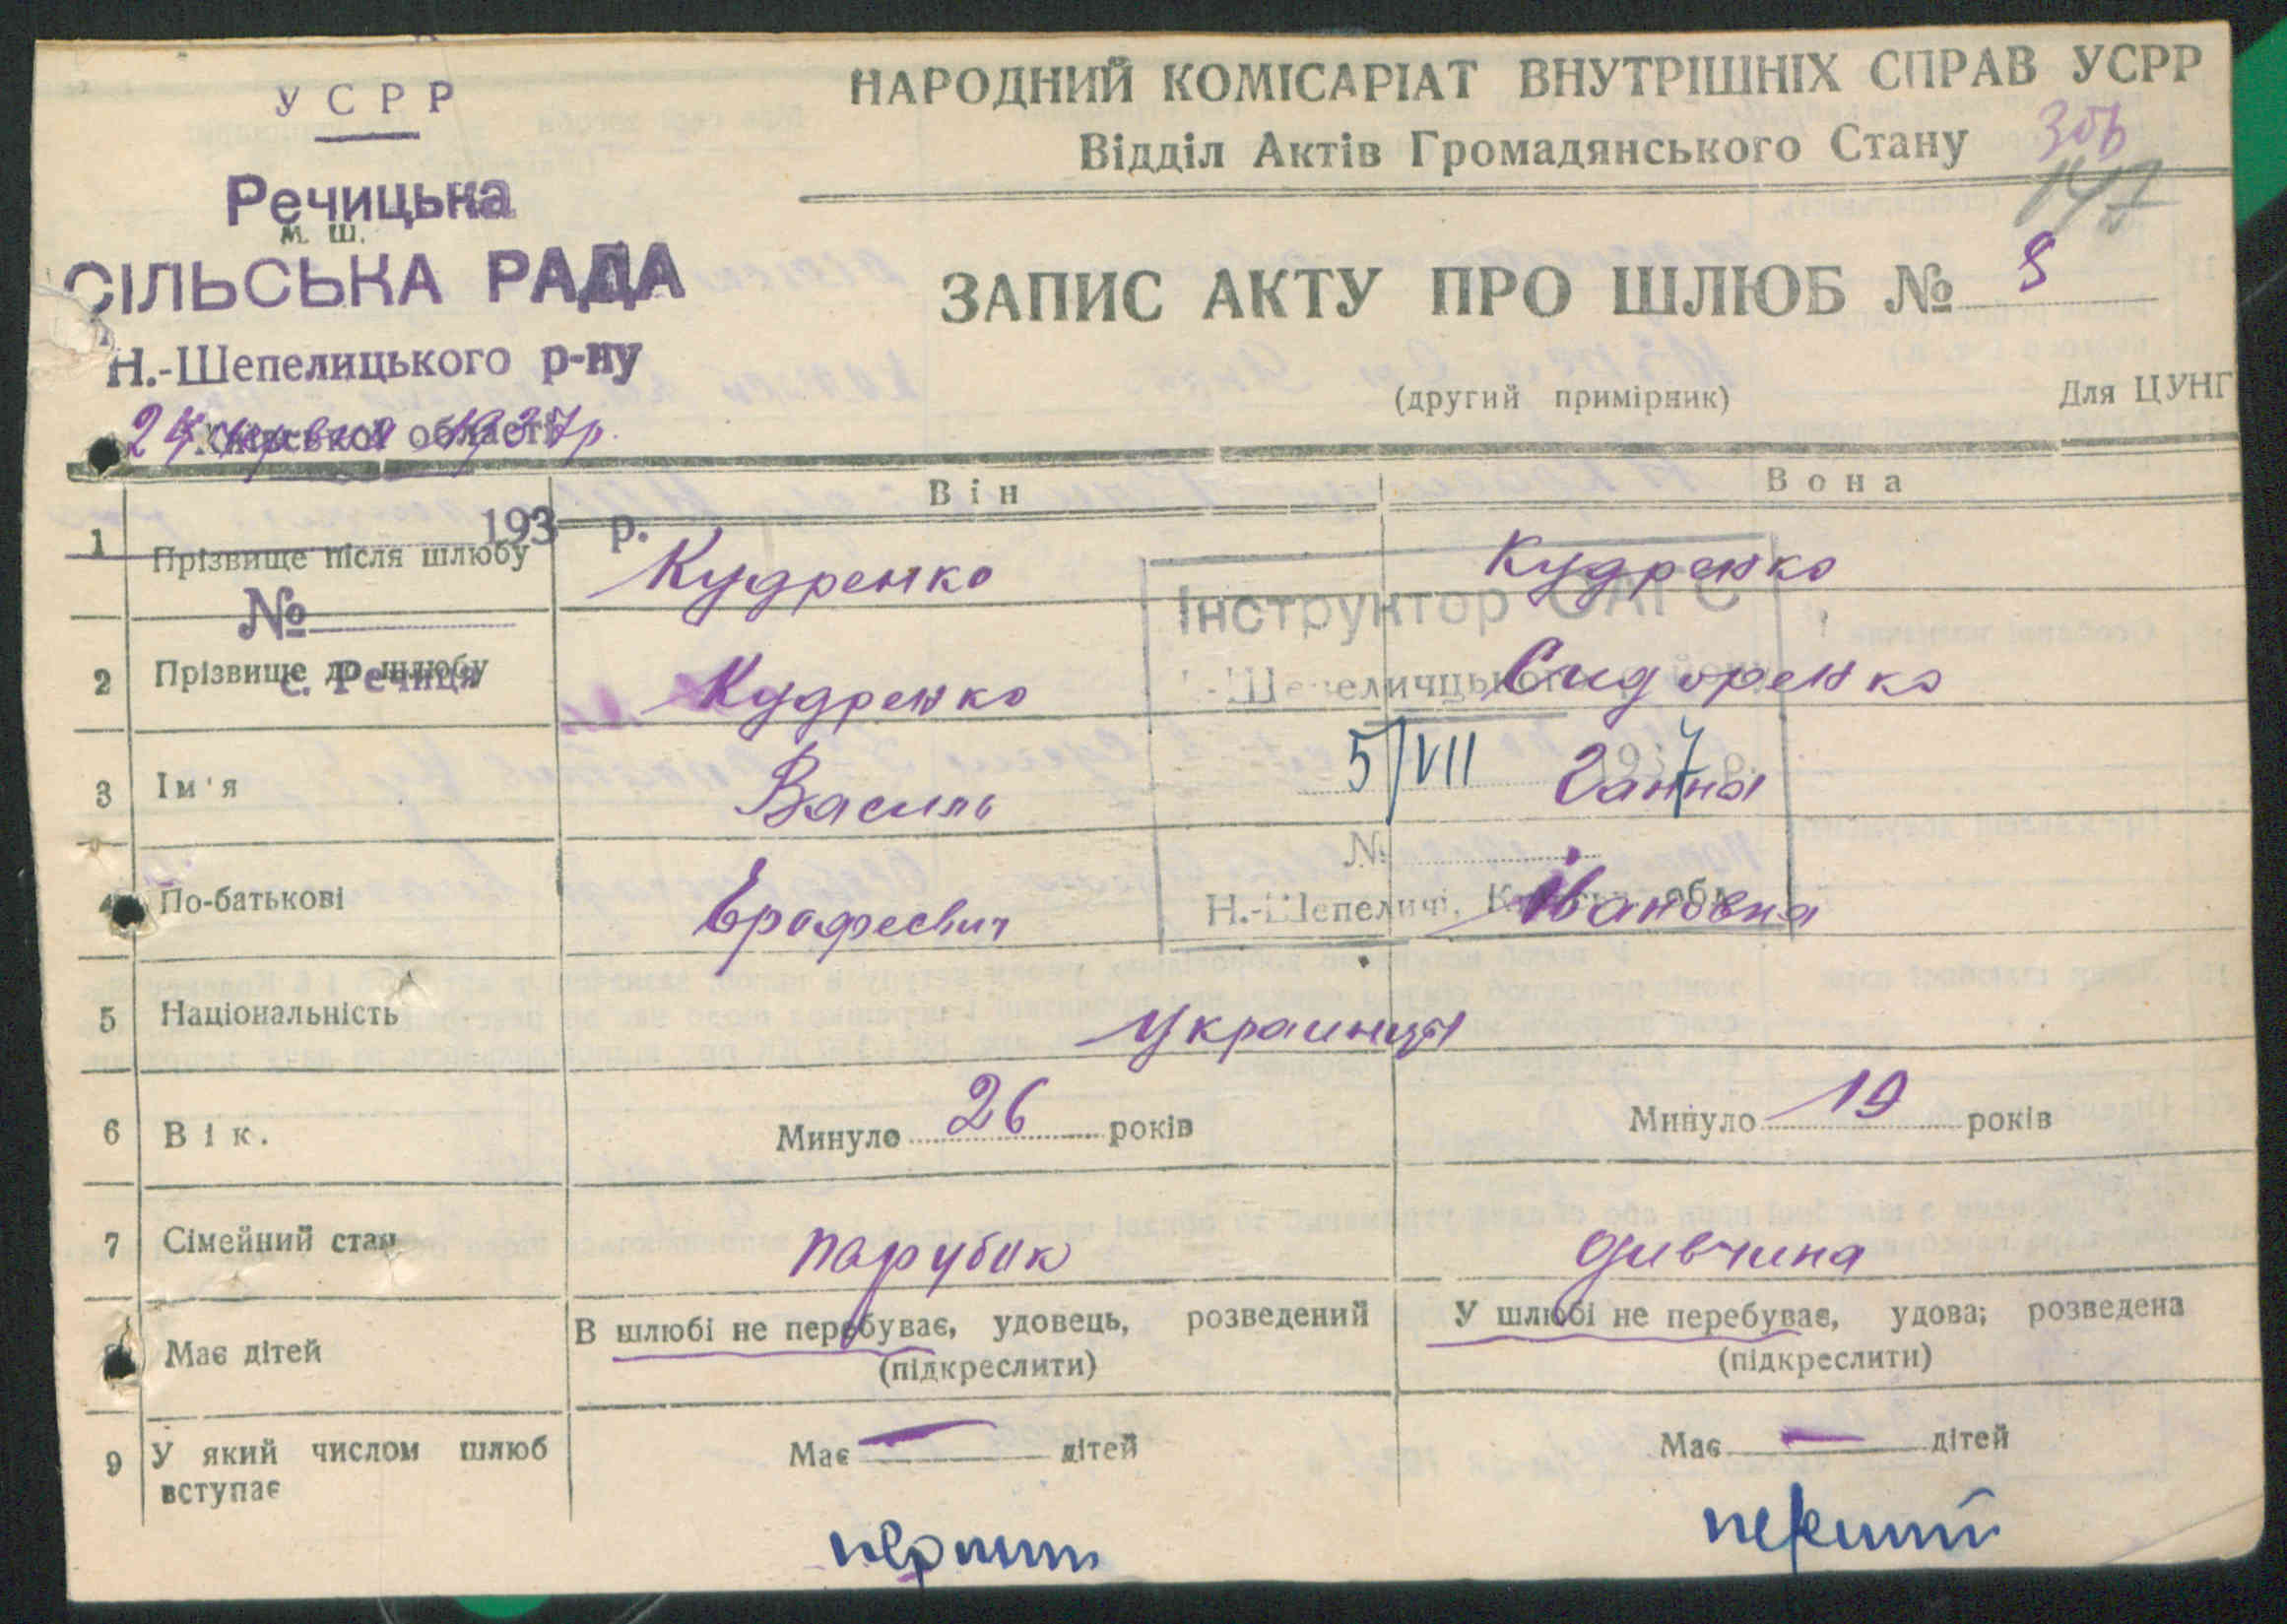 У С Р Р
Речицька
м. Ш.
СІЛЬСЬКА РАДА
Н.-Шепелицького р-ну
Київської області
24 червня 1937р.
193 р.
№
с. Речиця
НАРОДНИЙ КОМІСАРІАТ ВНУТРІШНІХ СПРАВ УСРР
Відділ Актів Громадянського Стану
147
ЗАПИС АКТУ ПРО ШЛЮБ №
(другий примірник)
Для ЦУНГ
Він Вона
1 Прізвище після шлюбу Кудренко Кудренко
Інструктор ОАГС
2 Прізвище до шлюбу Кудренко Сидоренко
Н.-Шепеличцького району
5/VII 1937 р.
3 Ім'я Василь Ганна
№
Н.-Шепеличі, Київська обл.
4 По-батькові Ерофеевич Івановна
5 Національність Украинци
6 Вік. Минуло 26 років Минуло 19 років
7 Сімейний стан парубик дивчина
В шлюбі не перебуває, удовець, розведений У шлюбі не перебуває, удова; розведена
(підкреслити) (підкреслити)
8 Має дітей
Має — дітей Має — дітей
9 У який числом шлюб
вступає
перший перший